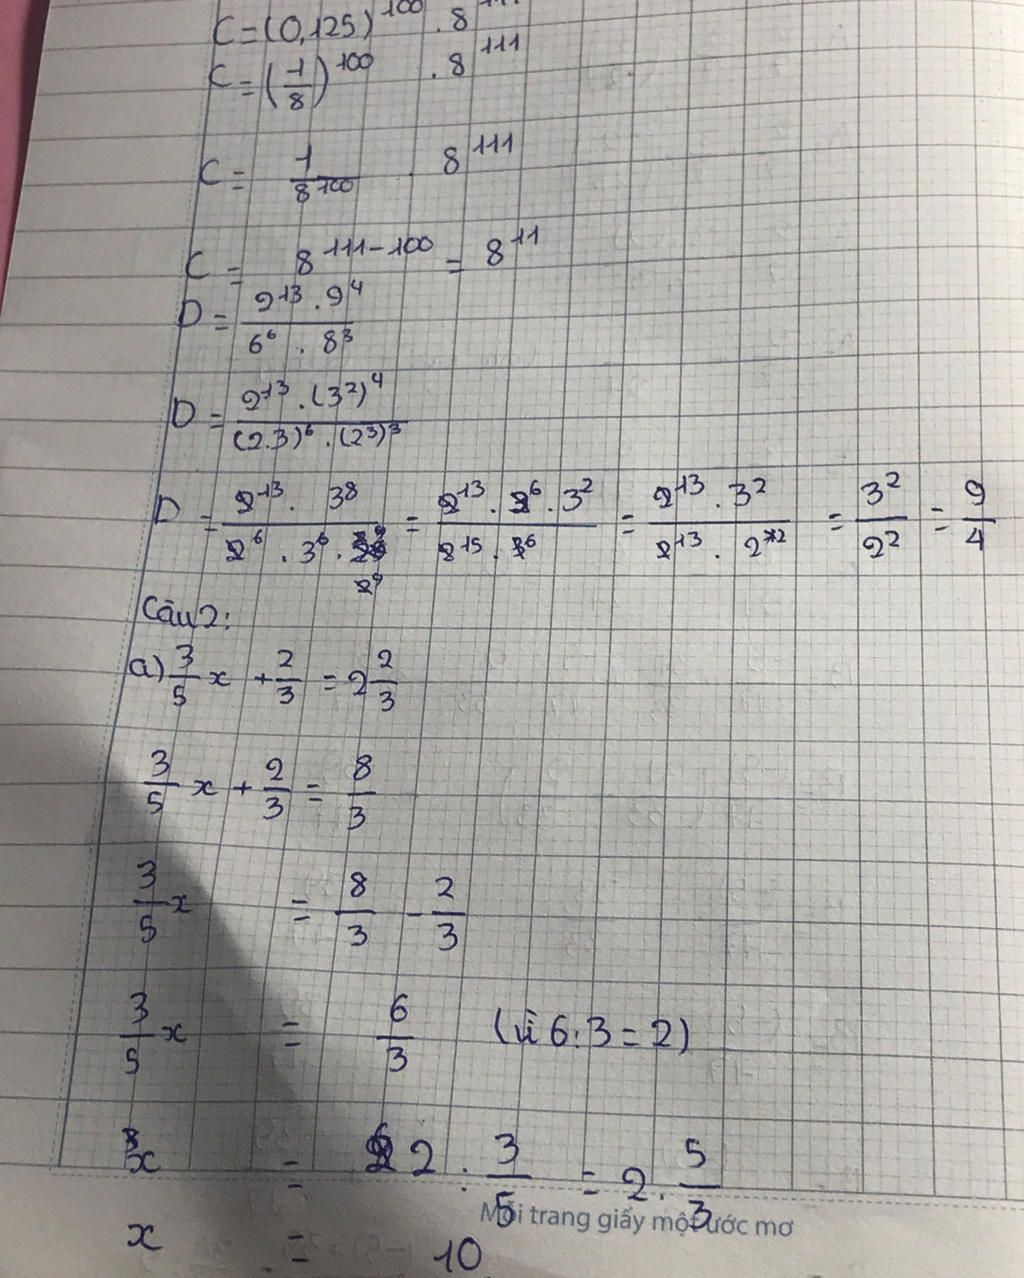 C = (0,125)^100 . 8^111
C = (1/8)^100 . 8^111
C = 1/8^100 . 8^111
C = 8^111-100 = 8^11
D = 2^13 . 9^4 / 6^6 . 8^3
D = 2^13 . (3^2)^4 / (2.3)^6 . (2^3)^3
D = 2^13 . 3^8 / 2^6 . 3^6 . 2^9 = 2^13 . 3^6 . 3^2 / 2^15 . 3^6 = 2^13 . 3^2 / 2^13 . 2^2 = 3^2/2^2 = 9/4
Câu 2:
a) 3/5 x + 2/3 = 2 2/3
3/5 x + 2/3 = 8/3
3/5 x = 8/3 - 2/3
3/5 x = 6/3 (vì 6:3 = 2)
x = 2 . 3/5 = 2 . 5/3
x = 10
Mỗi trang giấy một ước mơ